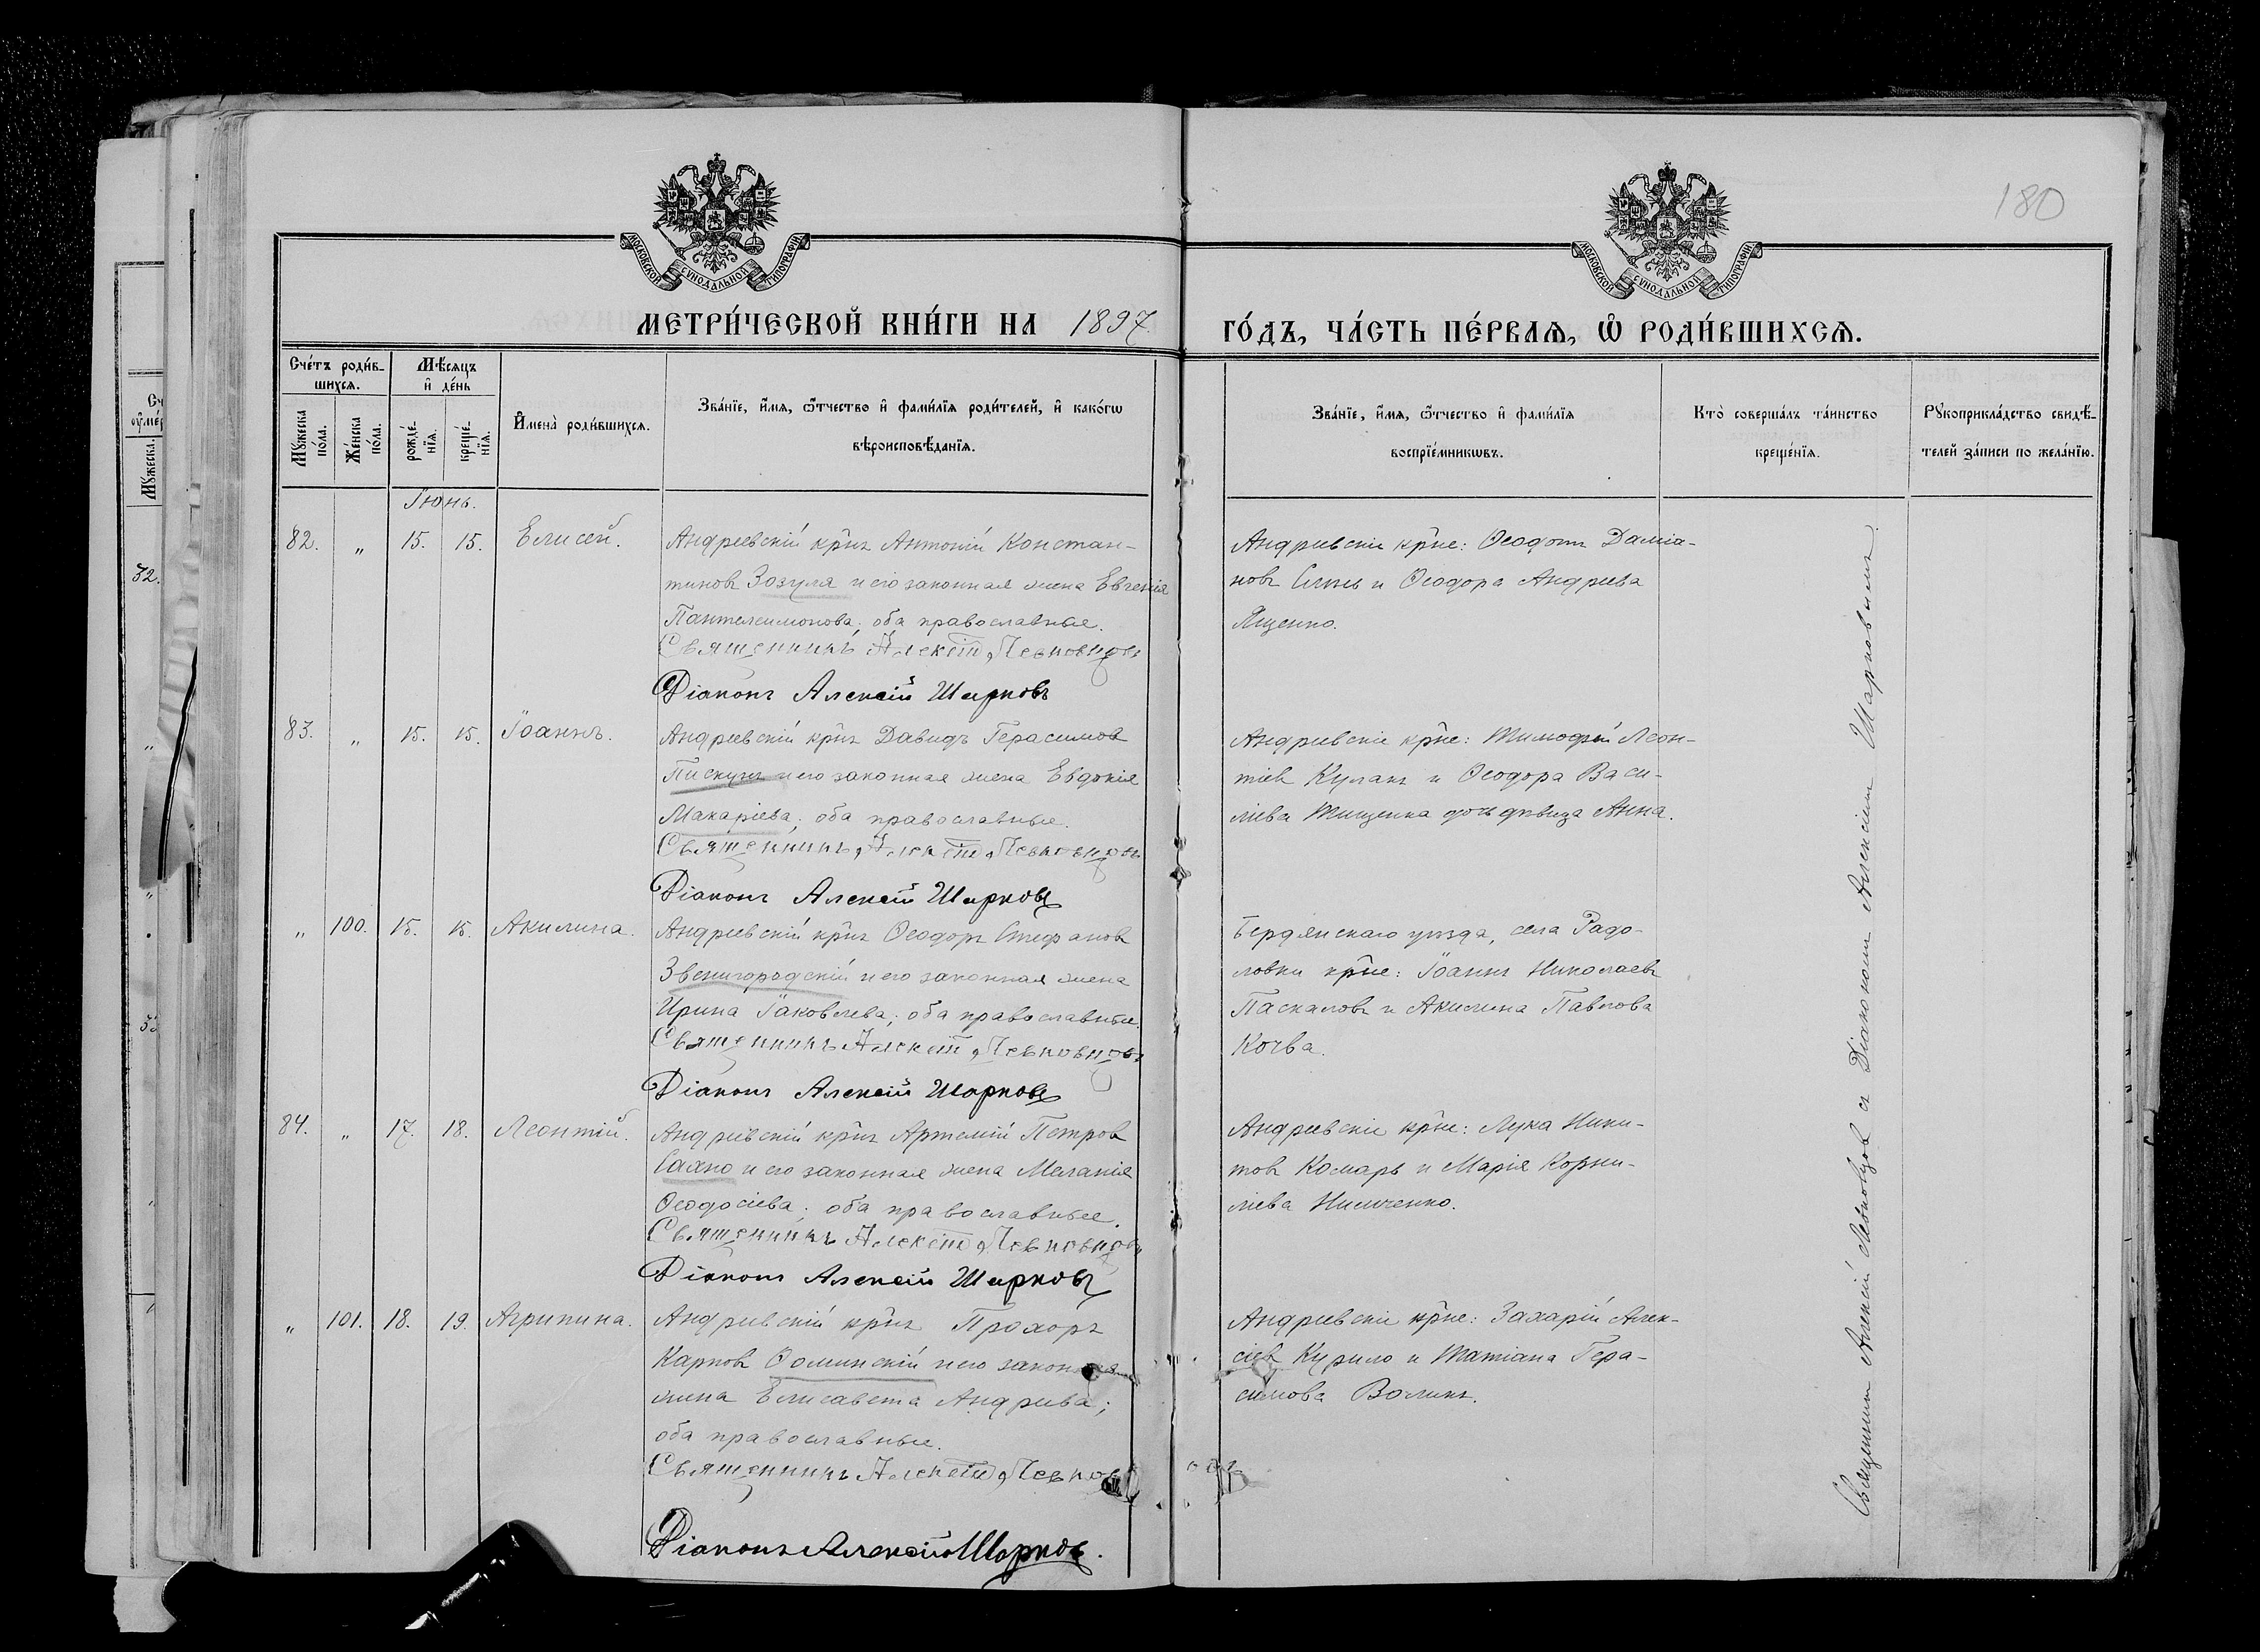 180
МОСКОВСКОЙ СѴНОДАЛЬНОЙ ТИПОГРАФІИ
МОСКОВСКОЙ СѴНОДАЛЬНОЙ ТИПОГРАФІИ
МЕТРИ́ЧЕСКОЙ КНИ́ГИ НА 1897 ГО́ДЪ, ЧА́СТЬ ПЕ́РВАѦ, Ѡ РОДИ́ВШИХСѦ.
Сче́тъ роди́в-
шихсѧ.
Мѣ́сѧцъ
и҆ де́нь
Мꙋ́жеска
по́ла.
Же́нска
по́ла.
рожде́-
нїѧ.
креще́-
нїѧ.
И҆мена̀ роди́вшихсѧ.
Зва́нїе, и҆́мѧ, ѻ҆́тчество и҆ фами́лїѧ роди́телей, и҆ како́гѡ
вѣроисповѣ́данїѧ.
Зва́нїе, и҆́мѧ, ѻ҆́тчество и҆ фами́лїѧ
воспрїе́мникѡвъ.
Кто̀ соверша́лъ та́инство
креще́нїѧ.
Рꙋкоприкла́дство свидѣ́-
телей за́писи по жела́нїю.
Іюнь.
82. „ 15. 15. Елисей.
Андреевскій кр̃нъ Антоній Констан-
тиновъ Зозуля и его законная жена Евгенія
Пантелеимонова; оба православные.
Священникъ Алексій Левковцовъ
Діаконъ Алексій Шарковъ
Андреевскіе кр̃не: Ѳеодотъ Даміа-
новъ и Ѳеодора Андреева
Ященко.
83. „ 15. 15. Іоаннъ.
Андреевскій кр̃нъ Давидъ Герасимовъ
Пискунъ и его законная жена Евдокія
Макаріева; оба православные.
Священникъ Алексій Левковцовъ
Діаконъ Алексій Шарковъ
Андреевскіе кр̃не: Тимофей Леон-
тіевъ Кулакъ и Ѳеодора Васи-
ліева Тищенка дочь дѣвица Анна.
„ 100. 15. 15. Акилина.
Андреевскій кр̃нъ Ѳеодоръ Стефановъ
Звенигородскій и его законная жена
Ирина Іаковлева; оба православные.
Священникъ Алексій Левковцовъ
Діаконъ Алексій Шарковъ
Бердянскаго уѣзда, села Радо-
ловки кр̃не: Іоаннъ Николаевъ
Паскаловъ и Акилина Павлова
Кочва.
84. „ 17. 18. Леонтій.
Андреевскій кр̃нъ Артемій Петровъ
Сахно и его законная жена Меланія
Ѳеодосіева; оба православные.
Священникъ Алексій Левковцовъ
Діаконъ Алексій Шарковъ
Андреевскіе кр̃не: Лука Ники-
товъ Комаръ и Марія Корни-
ліева Нимченко.
„ 101. 18. 19. Агрипина.
Андреевскій кр̃нъ Прохоръ
Карповъ Ѳоминскій и его законная
жена Елисавета Андреева;
оба православные.
Священникъ Алексій Левковцовъ
Діаконъ Алексій Шарковъ.
Андреевскіе кр̃не: Захарій Алек-
сіевъ Курило и Татіана Гера-
симова Воликъ.
Священникъ Алексій Левковцовъ съ Діакономъ Алексіемъ Шарковымъ.
32.